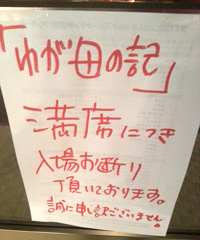 「わが母の記」
満席につき
入場お断り
頂いております。
誠に申し訳ございません。